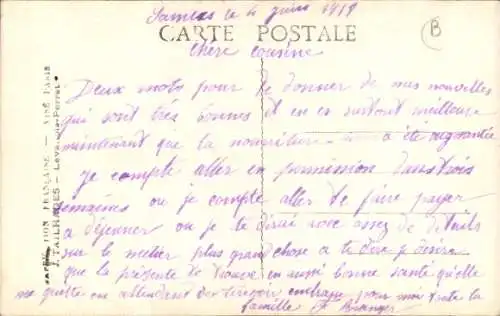 Samedi le 4 juin 1919
CARTE POSTALE
B
chère cousine
Deux mots pour te donner de mes nouvelles
qui sont très bonnes et en surtout meilleure
maintenant que la nourriture a été augmentée
Je compte aller en permission dans trois
semaines ou je compte aller te faire payer
a déjeuner ou je te dirai avec assez de details
sur le metier plus grand chose a te dire je désire
que la présente te trouve en aussi bonne santé qu'elle
me quitte en attendant de embrasse pour moi toute la
famille
FRANÇAISE — VISÉ PARIS
J. TAILHADES — Levallois-Perret